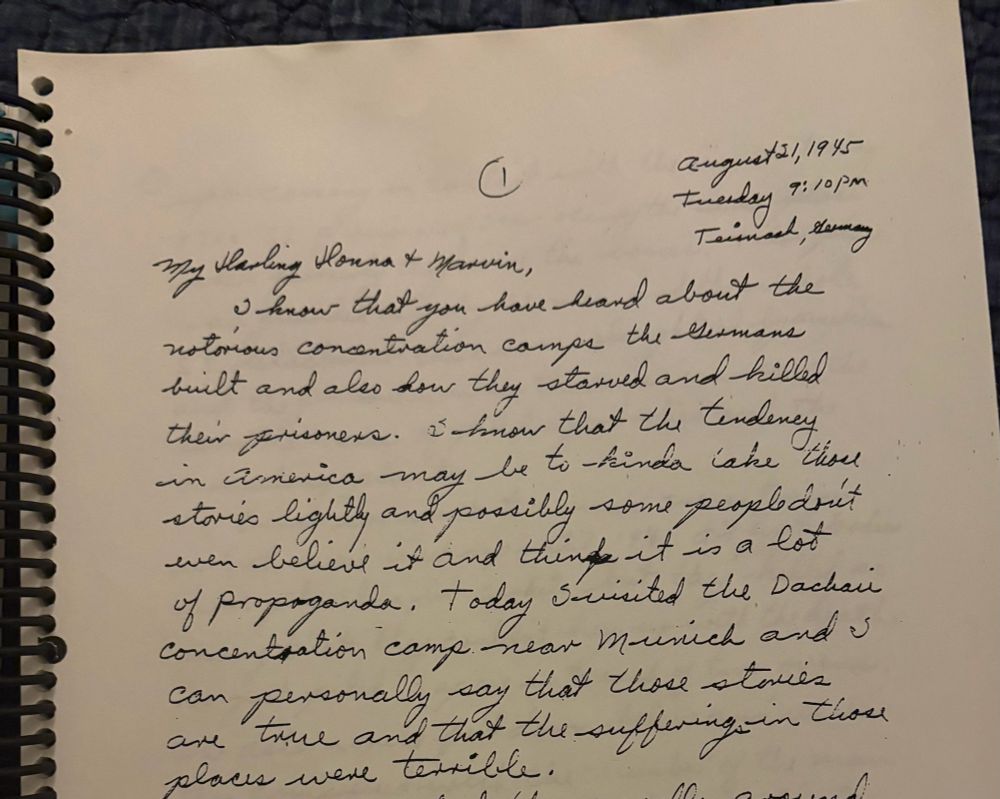 ①
August 21, 1945
Tuesday 9:10 PM
Teisnach, Germany
My Darling Donna + Marvin,
I know that you have heard about the
notorious concentration camps the Germans
built and also how they starved and killed
their prisoners. I know that the tendency
in America may be to kinda take those
stories lightly and possibly some people don't
even believe it and think it is a lot
of propoganda. Today I visited the Dachau
concentration camp near Munich and I
can personally say that those stories
are true and that the sufferings in those
places were terrible.
around